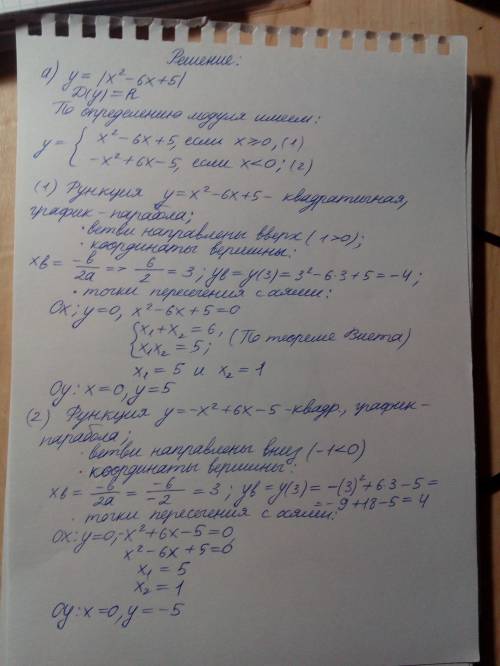 Решение:
а) y = |x² - 6x + 5|
D(y) = R
По определению модуля имеем:
y = { x² - 6x + 5, если x ≥ 0, (1)
-x² + 6x - 5, если x < 0; (2)
(1) Функция y = x² - 6x + 5 - квадратичная,
график - парабола;
· ветви направлены вверх (1 > 0);
· координаты вершины:
xв = -b/2a => 6/2 = 3; yв = y(3) = 3² - 6·3 + 5 = -4;
· точки пересечения с осями:
Ox: y = 0, x² - 6x + 5 = 0
{ x₁ + x₂ = 6,
x₁x₂ = 5; (По теореме Виета)
x₁ = 5 и x₂ = 1
Oy: x = 0, y = 5
(2) Функция y = -x² + 6x - 5 - квадр, график -
парабола;
· ветви направлены вниз (-1 < 0)
· координаты вершины:
xв = -b/2a = -6/-2 = 3; yв = y(3) = -(3)² + 6·3 - 5 =
= -9 + 18 - 5 = 4
· точки пересечения с осями:
Ox: y = 0, -x² + 6x - 5 = 0,
x² - 6x + 5 = 0
x₁ = 5
x₂ = 1
Oy: x = 0, y = -5